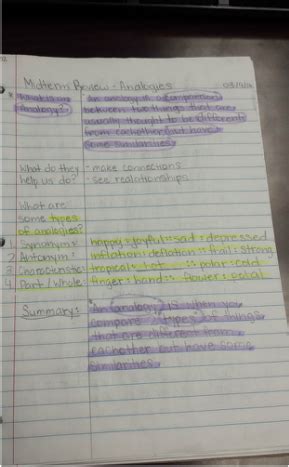 Midterm Review - Analogies
* What is an An analogy is a comparison
analogy? between two things that are
usually thought to be different
from eachother but have
some similarities
What do they - make connections
help us do? - see realationships
What are
some types
of analogies?
Synonym: happy : joyful :: sad : depressed
2 Antonym: inflation : deflation :: frail : strong
3 Characteristic: tropical : hot :: polar : cold
4 Part / Whole: finger : hand :: flower : petal
Summary: An analogy is when you
compare 2 types of things
that are different from
eachother but have some
similarities.